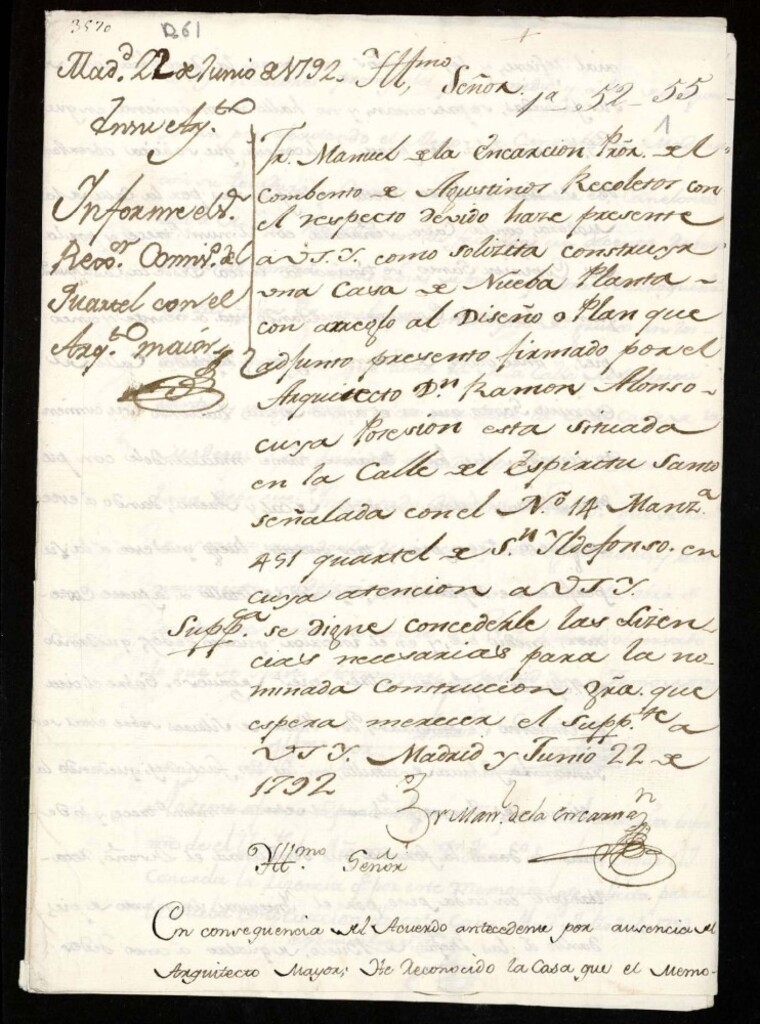 3570
D61
Mad.d 22 de Junio de 1792.
En su Ay.to
Informe el S.r
Rex.or Comis.o del
Quartel con el
Arq.to maior
Yll.mo Señor.
1a - 52 - 55
1
Fr. Manuel de la Encarcion Pror. de el
Combento de Agustinos Recoletos con
el respecto devido haze presente
a V.S.Y. como solizita construyr
una Casa de Nueba Planta
con arreglo al Diseño o Plan que
adjunto presento firmado por el
Arquitecto Dn. Ramon Alonso
cuya Posesion esta situada
en la Calle del Espiritu Santo
señalada con el No. 14 Manz.a
451 quartel de S.n Yldefonso. en
cuya atencion a V.S.Y.
Supp.ca se digne concederle las Lizen-
cias necesarias para la no-
minada Construccion Gra. que
espera merecer el Supp.te a
V.S.Y. Madrid y Junio 22 de
1792
Fr Man. de la Encarn.n
Yll.mo Señor
En consequencia del Acuerdo antecedente por ausencia del
Arquitecto Mayor; He Reconocido la Casa que el Memo-